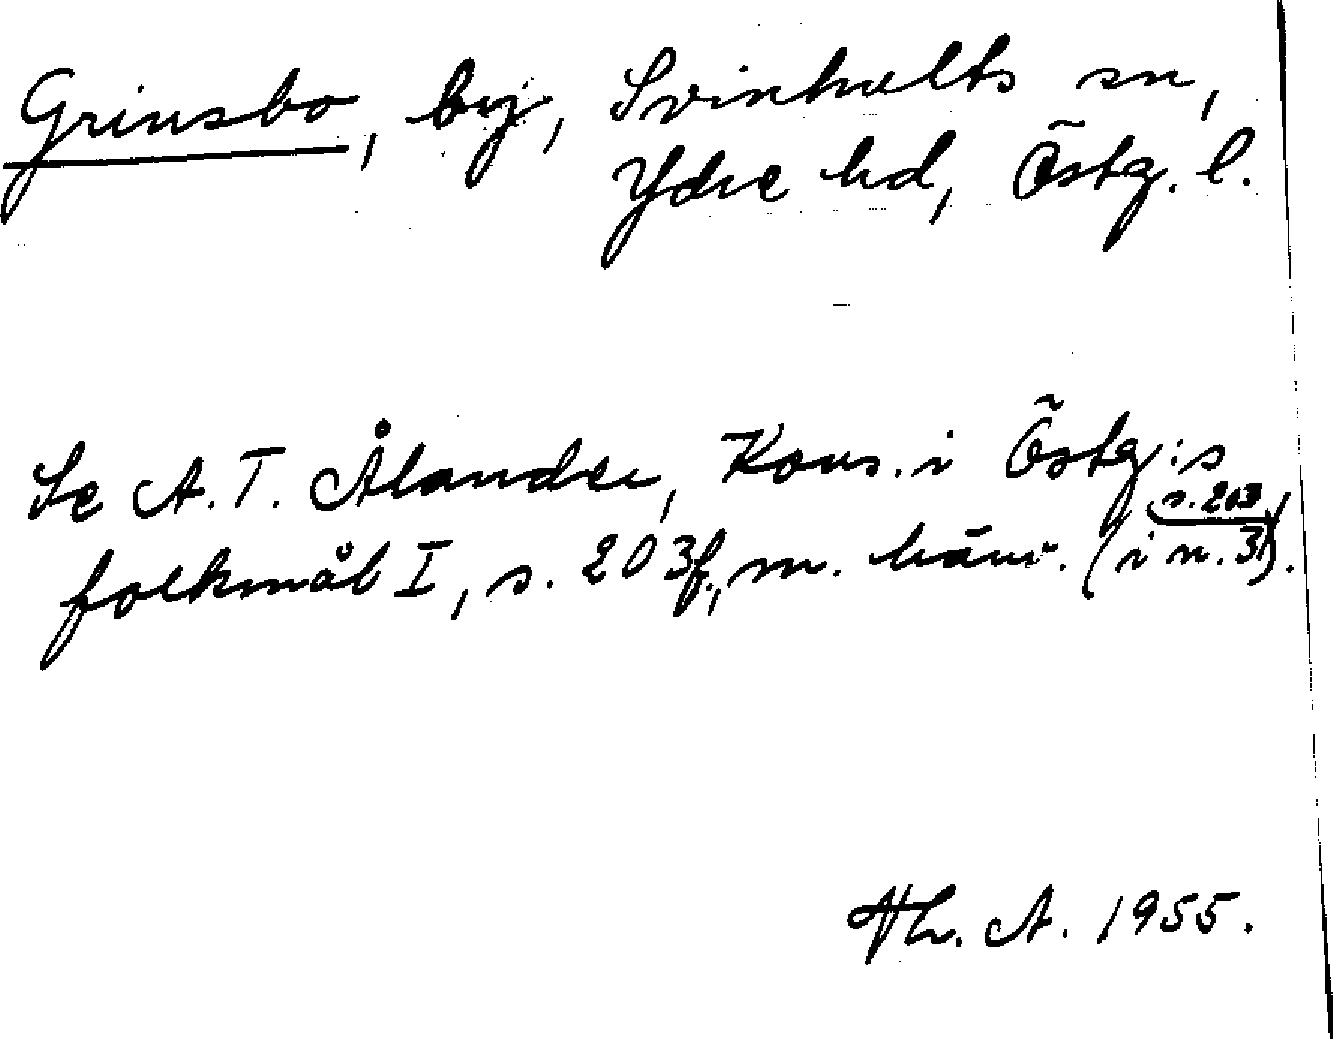 Grinsbo, by, Svinhults sn,
Ydre hd, Östg. l.
Se A. T. Ålander, Kons. i Östg:s
folkmål I, s. 203f., m. hänv. (i n. 3 s. 203).
Th. A. 1955.